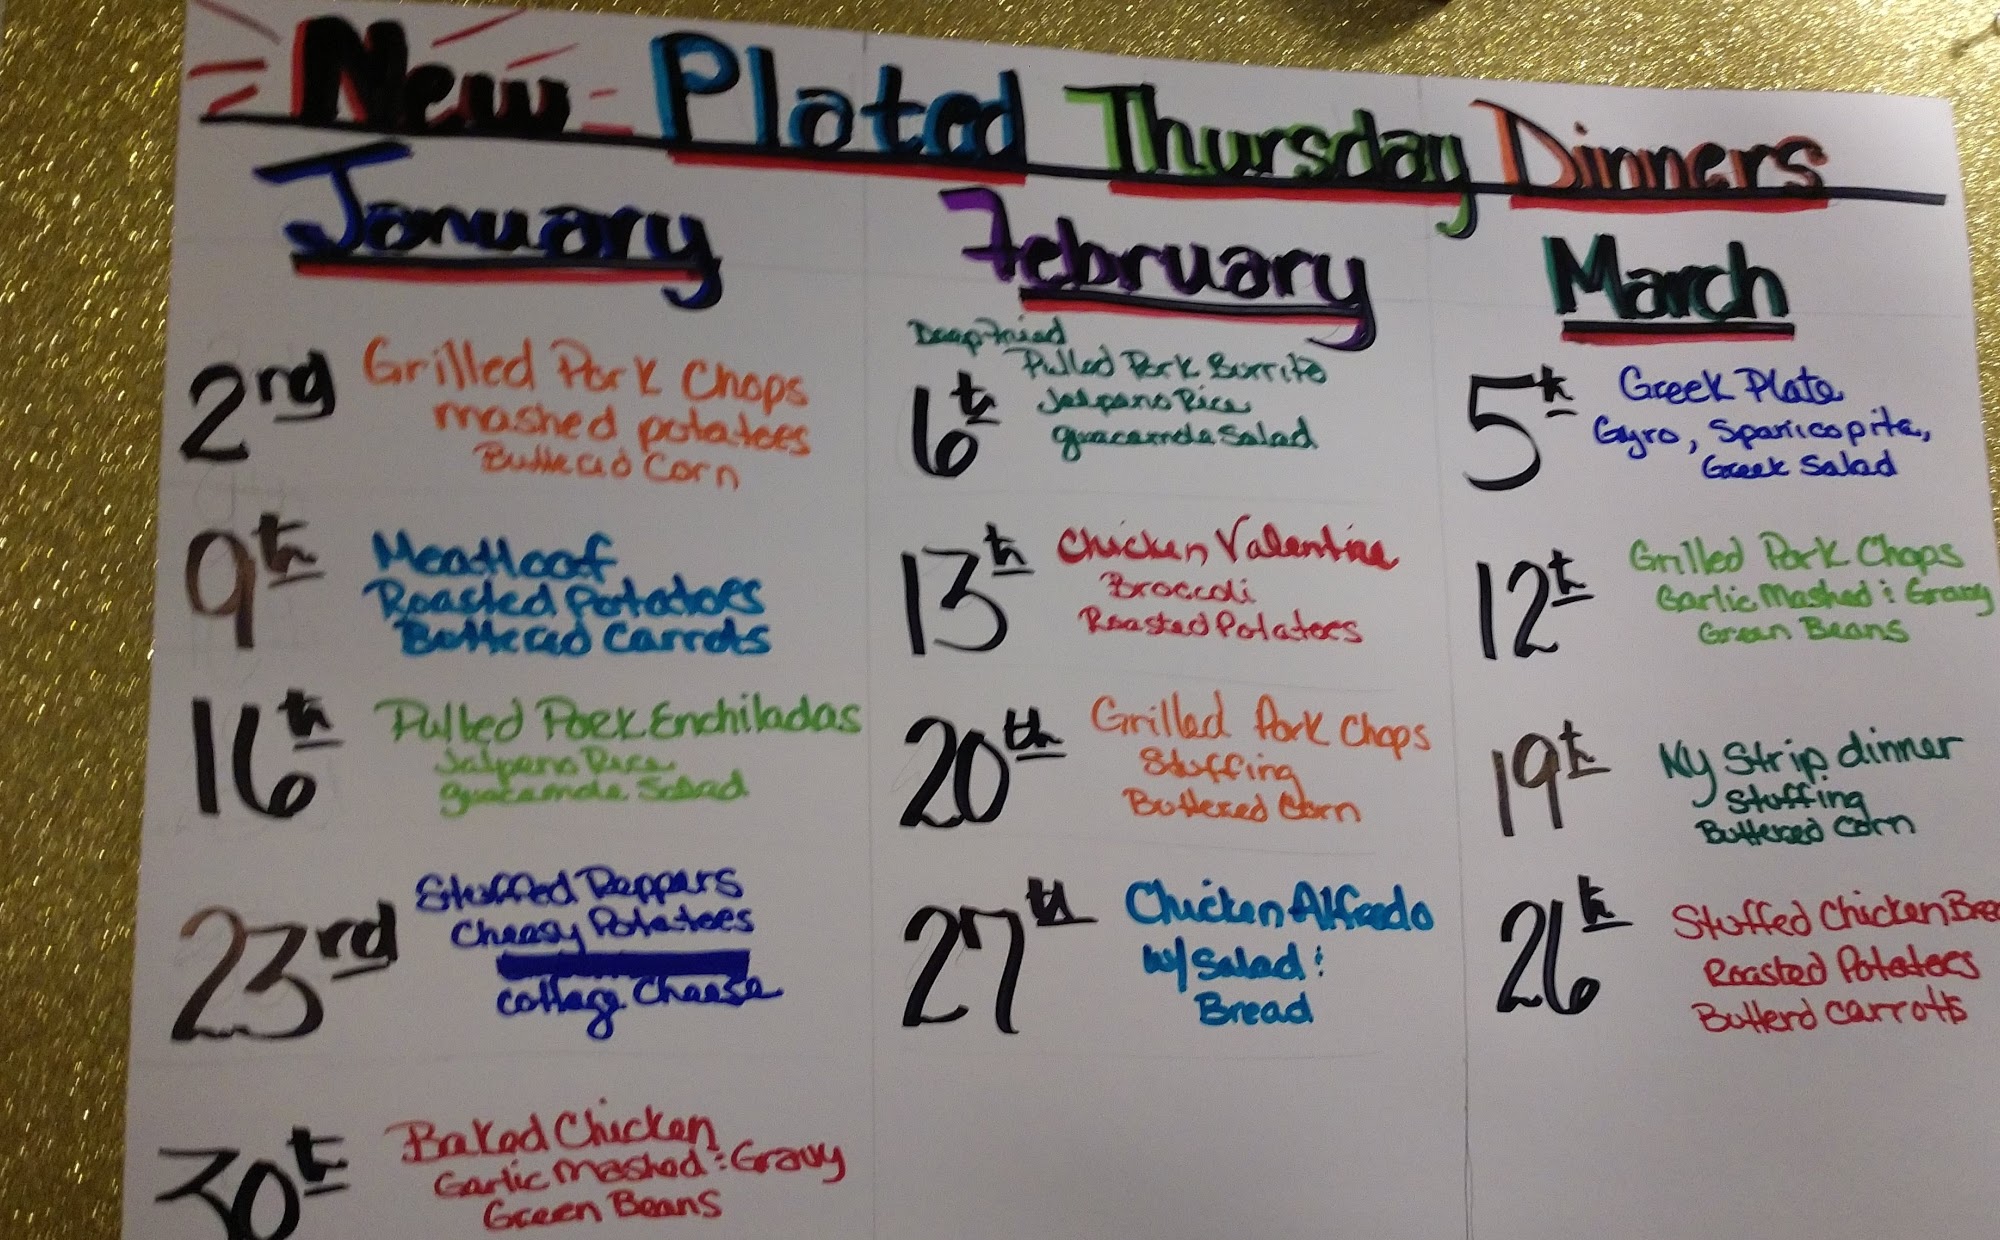 New Plated Thursday Dinners
January
2nd
Grilled Pork Chops
mashed potatoes
Buttered Corn
9th
Meatloaf
Roasted Potatoes
Buttered Carrots
16th
Pulled Pork Enchiladas
Jalpeno Rice
guacamole Salad
23rd
Stuffed Peppers
Cheesy Potatoes
cottage Cheese
30th
Baked Chicken
Garlic Mashed & Gravy
Green Beans
February
6th
Deep Fried
Pulled Pork Burrito
Jalpeno Rice
guacamole Salad
13th
Chicken Valentine
Broccoli
Roasted Potatoes
20th
Grilled Pork Chops
Stuffing
Buttered Corn
27th
Chicken Alfredo
w/ Salad &
Bread
March
5th
Greek Plate
Gyro, Spanicopita,
Greek Salad
12th
Grilled Pork Chops
Garlic Mashed & Gravy
Green Beans
19th
NY Strip dinner
Stuffing
Buttered Corn
26th
Stuffed Chicken
Roasted Potatoes
Butterd carrotts